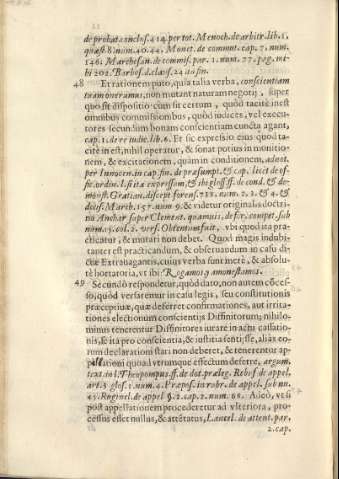 de probat. conclus. 414. per tot. Menoch. de arbitr. lib. 1.
quæst. 8. num. 40. 44. Monet. de commut. cap. 7. num.
146. Marchesan. de commiss. par. 1. num. 77. pag. mi-
hi 202. Barbos. d. claus. 24. in fin.
48 Et rationem puto, quia talia verba, conscientiam
tuam oneramus, non mutant naturam negotij, super
quo fit dispositio: cum sit certum, quòd tacitè inest
omnibus commissionibus, quòd iudices, vel execu-
tores secundùm bonam conscientiam cuncta agant,
cap. 1. de re iudic. lib. 6. Et sic expressio eius quod ta-
citè inest, nihil operatur, & sonat potius in monitio-
nem, & excitationem, quàm in conditionem,
per Innocen. in cap. fin. de præsumpt. & cap. licèt de of-
fic. ordin. l. si ita expressum, & ibi glos. ff. de cond. & de-
monst. Gratian. discept. forens. 728. num. 2. 3. & 4. &
decis. March. 157. num. 9. & videtur originalis doctri-
na Anchar. super Clement. quamuis, de for. compet. sub
num. 15. col. 2. vers. Obtentum fuit, vbi quod ita pra-
cticatur, & mutari non debet. Quod magis indubi-
tanter est practicandum, & obseruandum in casu di-
ctæ Extrauagantis, cuius verba sunt merè, & absolu-
tè hortatoria, vt ibi: Rogamus, & monestamus.
49 Secundò respondetur, quòd dato, non autem cõces-
so, quòd versaremur in casu legis, seu constitutionis
præcipuæ, quæ deferret confirmationes, aut irrita-
tiones electionum conscientijs Diffinitorum; nihilo-
minus tenerentur Diffinitores iurare in actu cassatio-
nis, se ita pro conscientia, & iustitia sentisse, alias eo-
rum declarationi stari non deberet, & tenerentur ap-
pellationi quoad vtrumque effectum deferre, argum.
text. in l. Theopompus. ff. de dot. præleg. Rebuf. de appel.
art. 3. glos. 1. num. 4. Præpos. in rubr. de appel. sub nu.
45. Roginel. de appel. §. 2. cap. 2. num. 68. Adeò, vt si
post appellationem procederetur ad vlteriora, pro-
cessus esset nullus, & attẽtatus, Lancel. de attent. par.
2. cap.